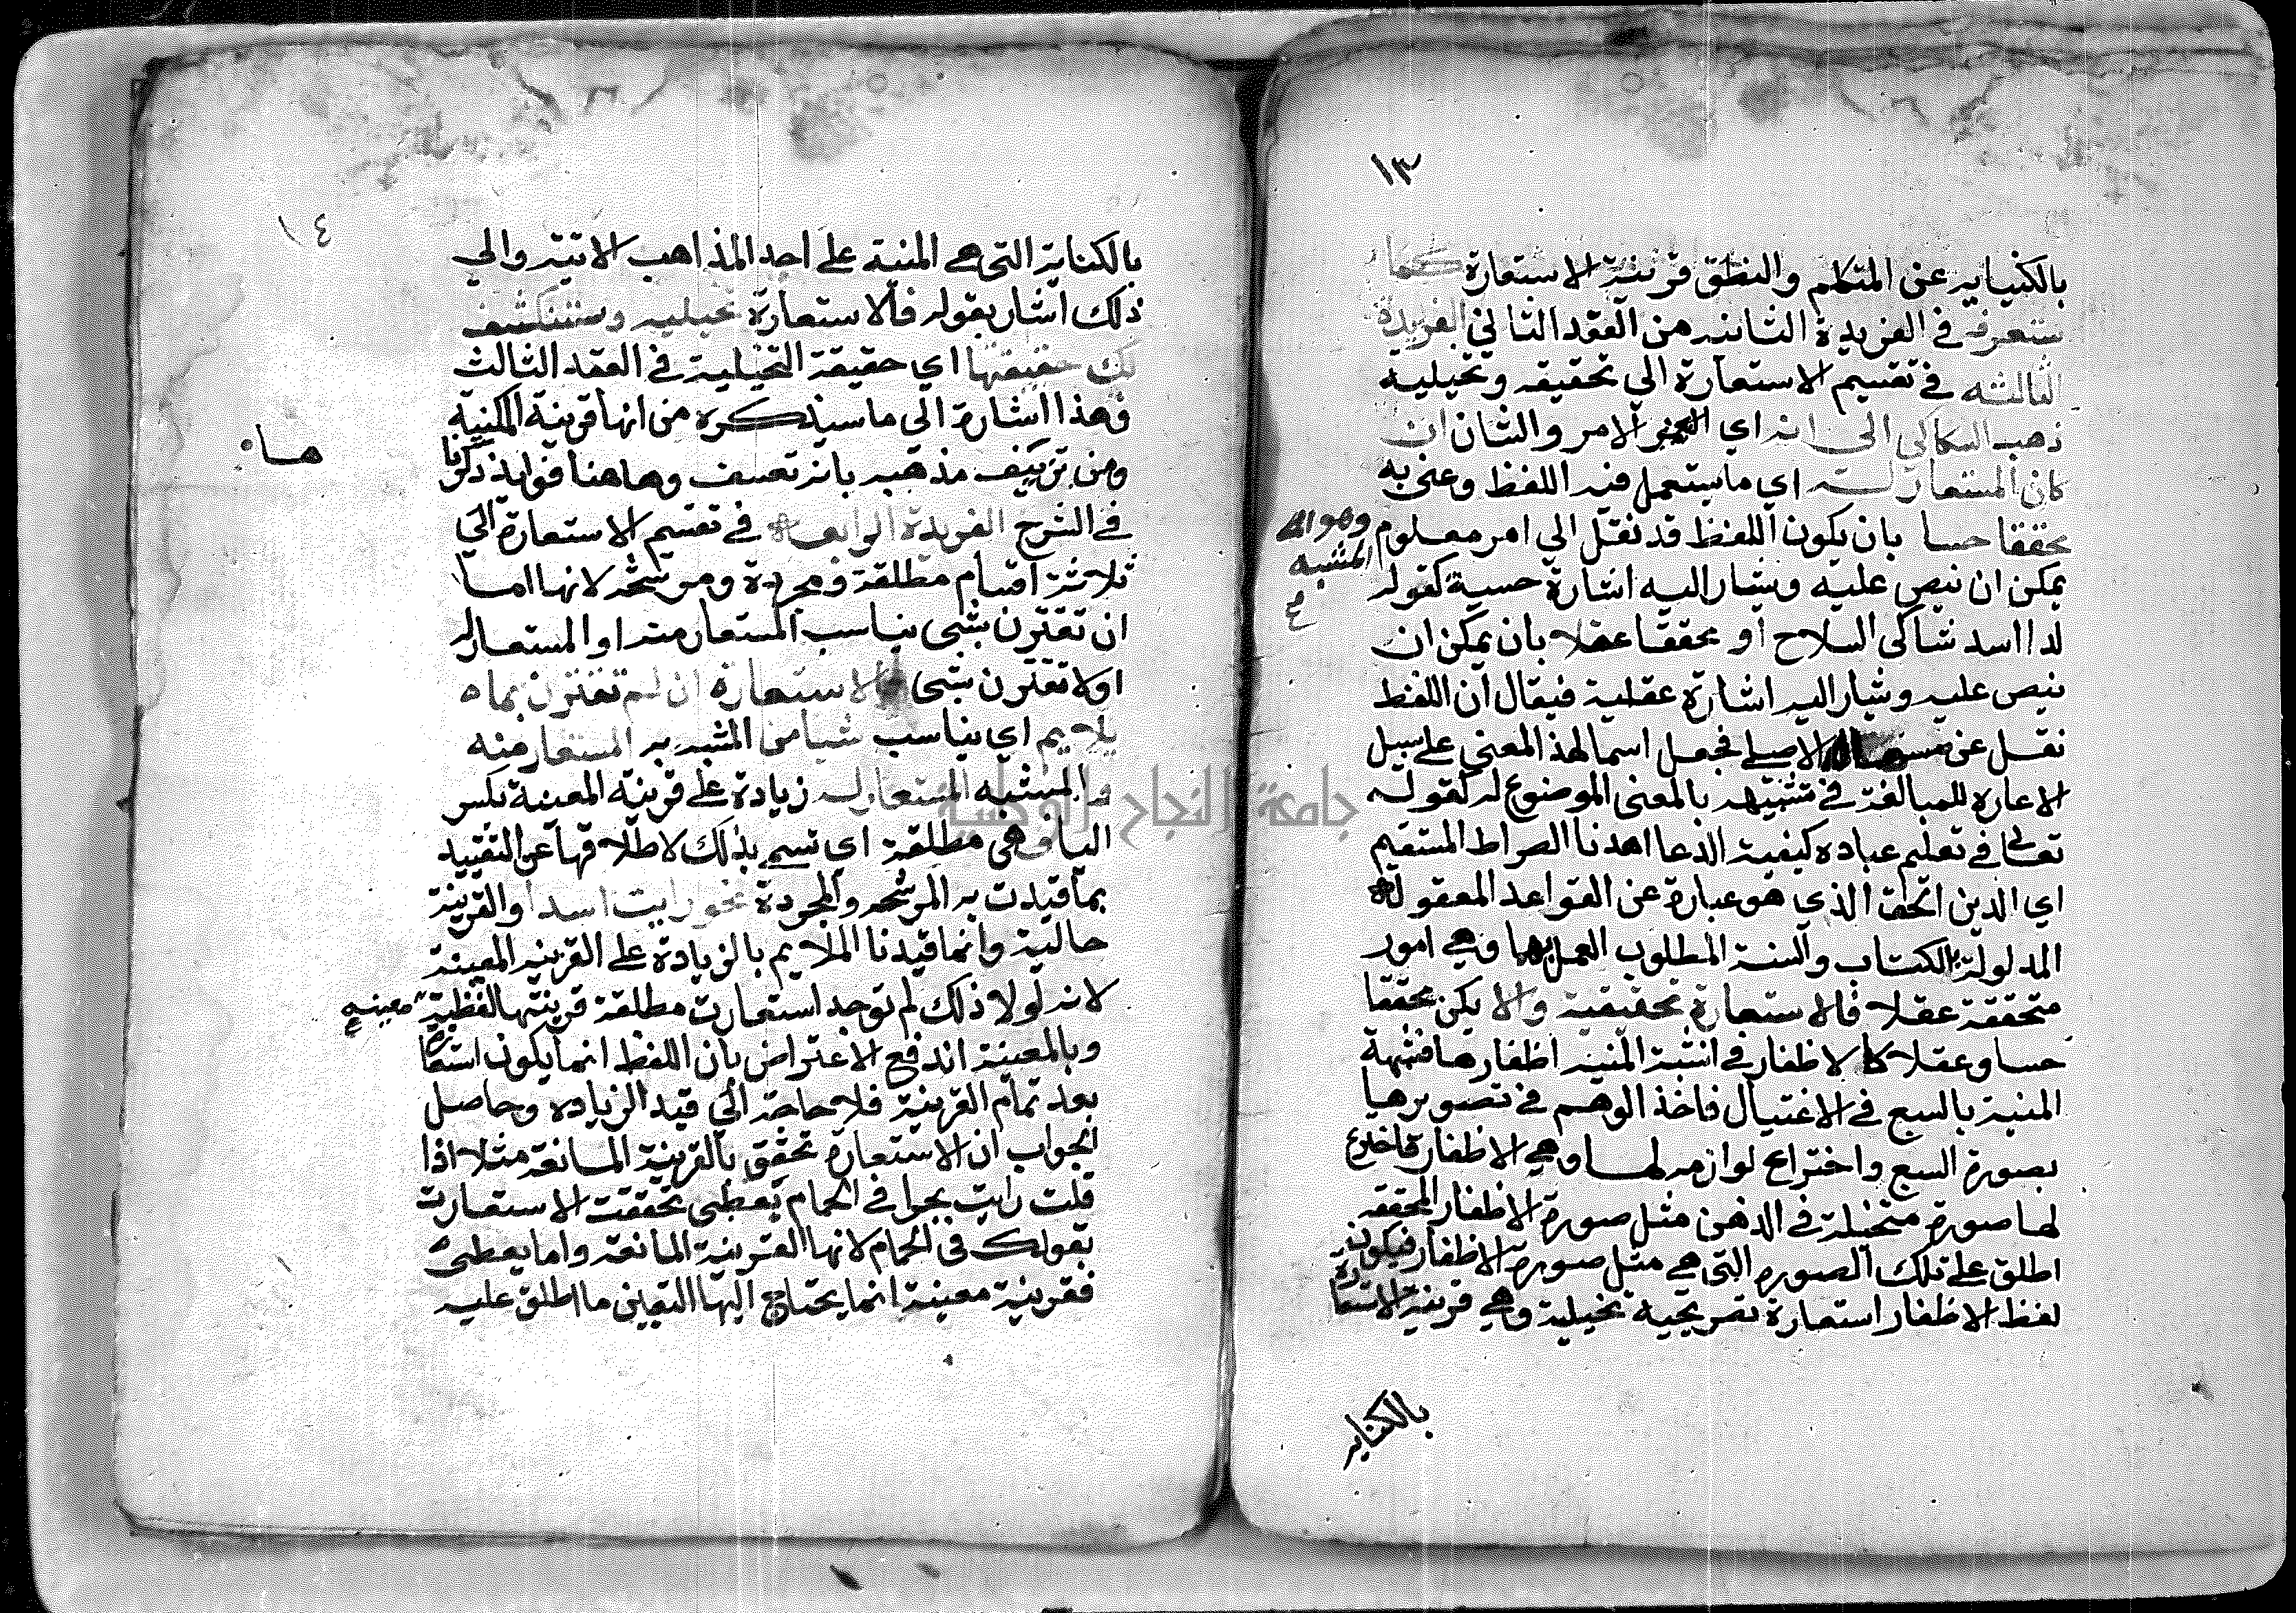 ١٣
بالكنيايه عن المتكلم والنطق قرينة الاستعارة كما
ستعرفه في الفريدة الثانيه من العقد الثاني الفريدة
الثالثه في تقسيم الاستعارة الي تحقيقه وتخيليه
ذهب السكاكي الى انه اي الامر والشان ان
كان المستعار له اي ما يستعمل فيه اللفظ وعني به
وهو
المشبه
محققا حسا بان يكون اللفظ قد نقل الي امر معلوم
يمكن ان ينص عليه ويشار اليه اشارة حسية كقوله
لدا اسد شاكى السلاح او محققا عقلا بان يمكن ان
ينص عليه ويشار اليه اشارة عقلية فيقال ان اللفظ
نقل عن الاصلي فجعل اسما لهذ المعني على سبيل
الاعاره للمبالغة في تشبيهه بالمعنى الموضوع له كقوله
تعالى في تعليم عباده كيفية الدعا اهدنا الصراط المستقيم
اي الدين الحق الذي هو عبارة عن القواعد المعقولة
المدلولة بالكتاب والسنة المطلوب العمل بها وهي امور
متحققة عقلا فالاستعارة تحقيقية والا يكن محققا
حسا وعقلا كالاظفار في انشبة المنيه اظفارها فشبهة
المنية بالسبع في الاغتيال فاخذ الوهم في تصويرها
بصورة السبع واختراع لوازمه لها وهي الاظفار فاخترع
لها صورة متخيلة في الذهن مثل صورة الاظفار المحققه
اطلق على تلك الصورة التي هي مثل صورة الاظفار فيكون
لفظ الاظفار استعارة تصريحية تخيلية وهي قرينة الاستعارة
بالكنايه
١٤
بالكناية التي هي المنية على احد المذاهب الاتيه والي
ذلك اشار بقوله فالاستعارة تخيليه وستنكشف
لك حقيقتها اي حقيقة التخيلية في العقد الثالث
وهذا اشارة الى ما سيذكره من انها قرينة المكنية
هاه
ومن تزييف مذهبه بانه تعسف وهاهنا فوايد ذكرنا
في الشرح الفريدة الرابعة في تقسيم الاستعارة الي
ثلاثة اقسام مطلقة ومجردة ومرشحه لانها اما
ان تقترن بشي يناسب المستعار منه او المستعار له
اولا تقترن بشي الاستعارة ان لم تقترن بما
يلايم اي يناسب شيا من المشبه به المستعار منه
والمشبه المستعار له زيادة على قرينة المعينة بكسر
اليا وهي مطلقة اي تسمي بذلك لاطلاقها عن التقييد
بما قيدت به المرشحه والمجردة نحو رايت اسدا والقرينة
حالية وانما قيدنا الملايم بالزيادة على القرينه المعينة
لانه لولا ذلك لم توجد استعارت مطلقة قرينتها لفظية معينه
وبالمعينة اندفع الاعتراض بان اللفظ انما يكون استعارة
بعد تمام القرينة فلا حاجة الي قيد الزياده وحاصل
الجواب ان الاستعارة تحقق بالقرينة المانعة مثلا اذا
قلت رايت بحرا في الحمام يعطى تحققت الاستعارت
بقولك في الحمام لانها القرينة المانعة واما يعطى
فقرينة معينة انما يحتاج اليها التعيين ما اطلق عليه
جامعة النجاح الوطنية